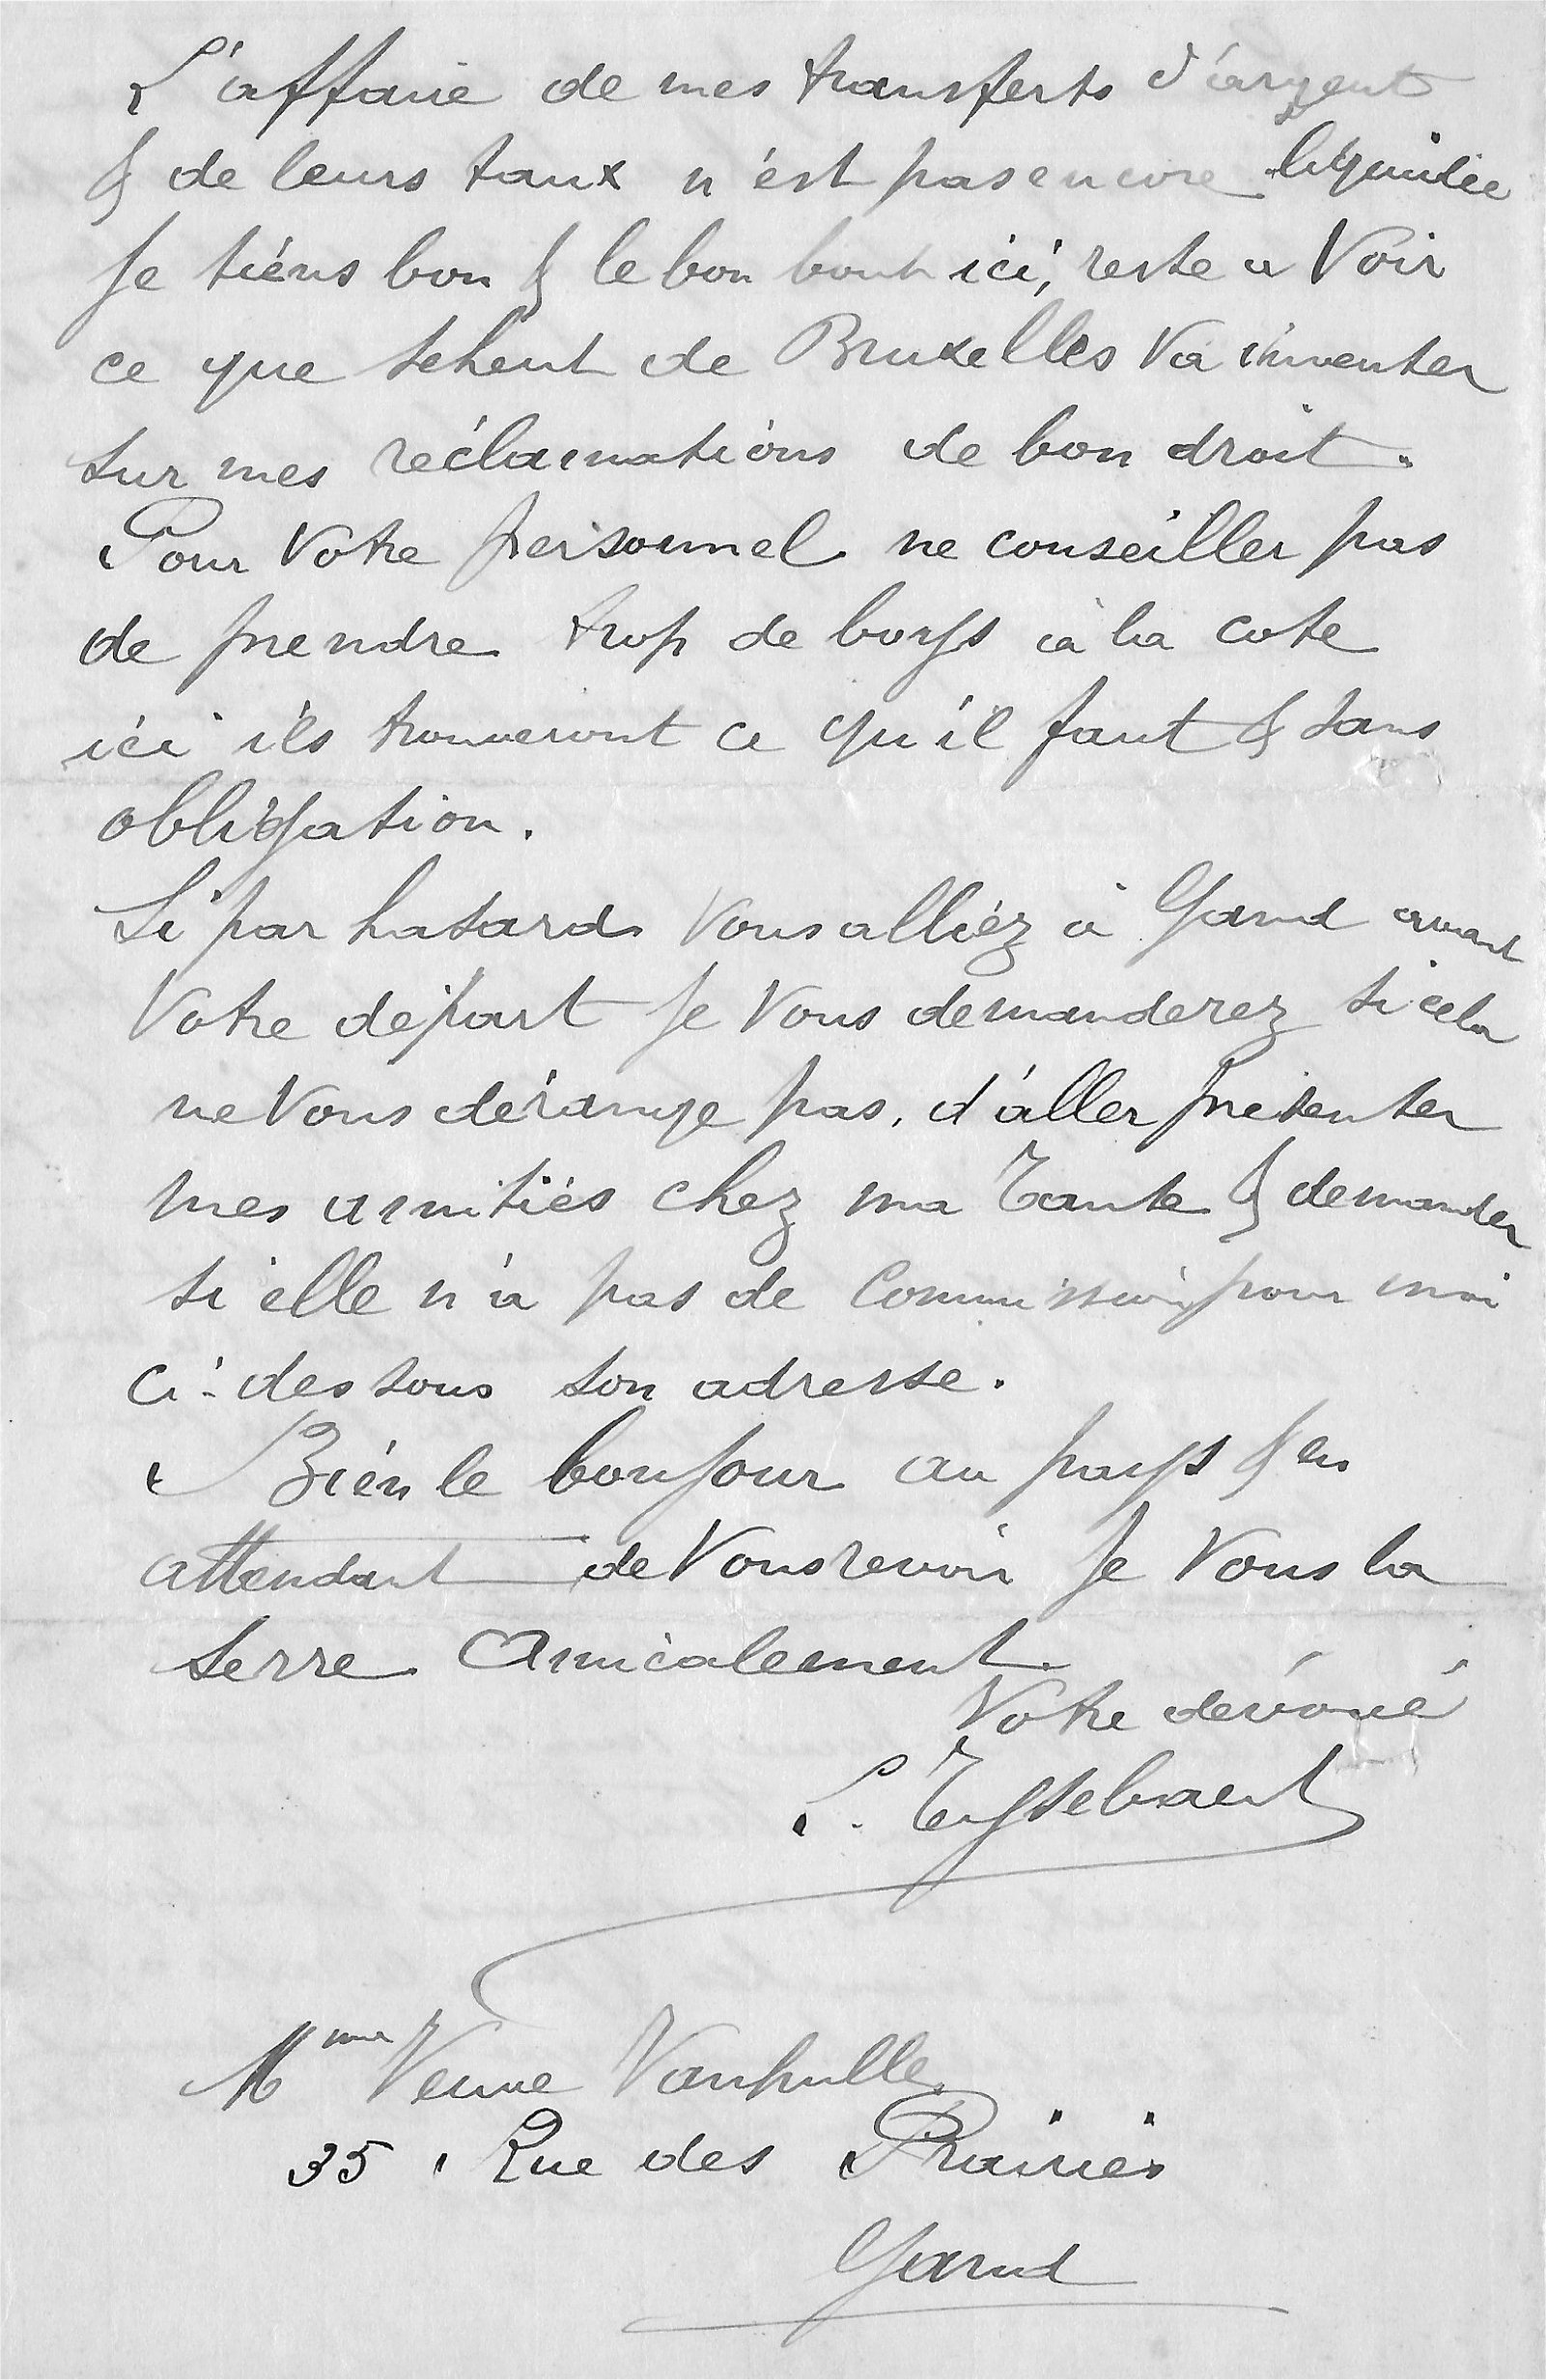 L'affaire de mes transferts d'argent
& de leurs taux n'est pas encore liquidée
Je tiens bon & le bon bout ici, reste a Voir
ce que sehent de Bruxelles va inventer
sur mes réclamations de bon droit.
Pour Votre personnel ne conseiller pas
de prendre trop de boys à la cote
ici ils trouveront ce qu'il faut & sans
obligation.
Si par hasard Vous alliéz à Gand avant
Votre départ Je Vous demanderez si cela
ne Vous dérange pas, d'aller présenter
mes amitiés chez ma Tante & demander
si elle n'a pas de Commission pour moi
ci-dessous son adresse.
Bien le bonjour au pays & en
attendant de Vous revoir Je Vous la
serre Amicalement
Votre dévoué
L.
Mme Veuve Vanhulle
35, Rue des Prairies
Gand